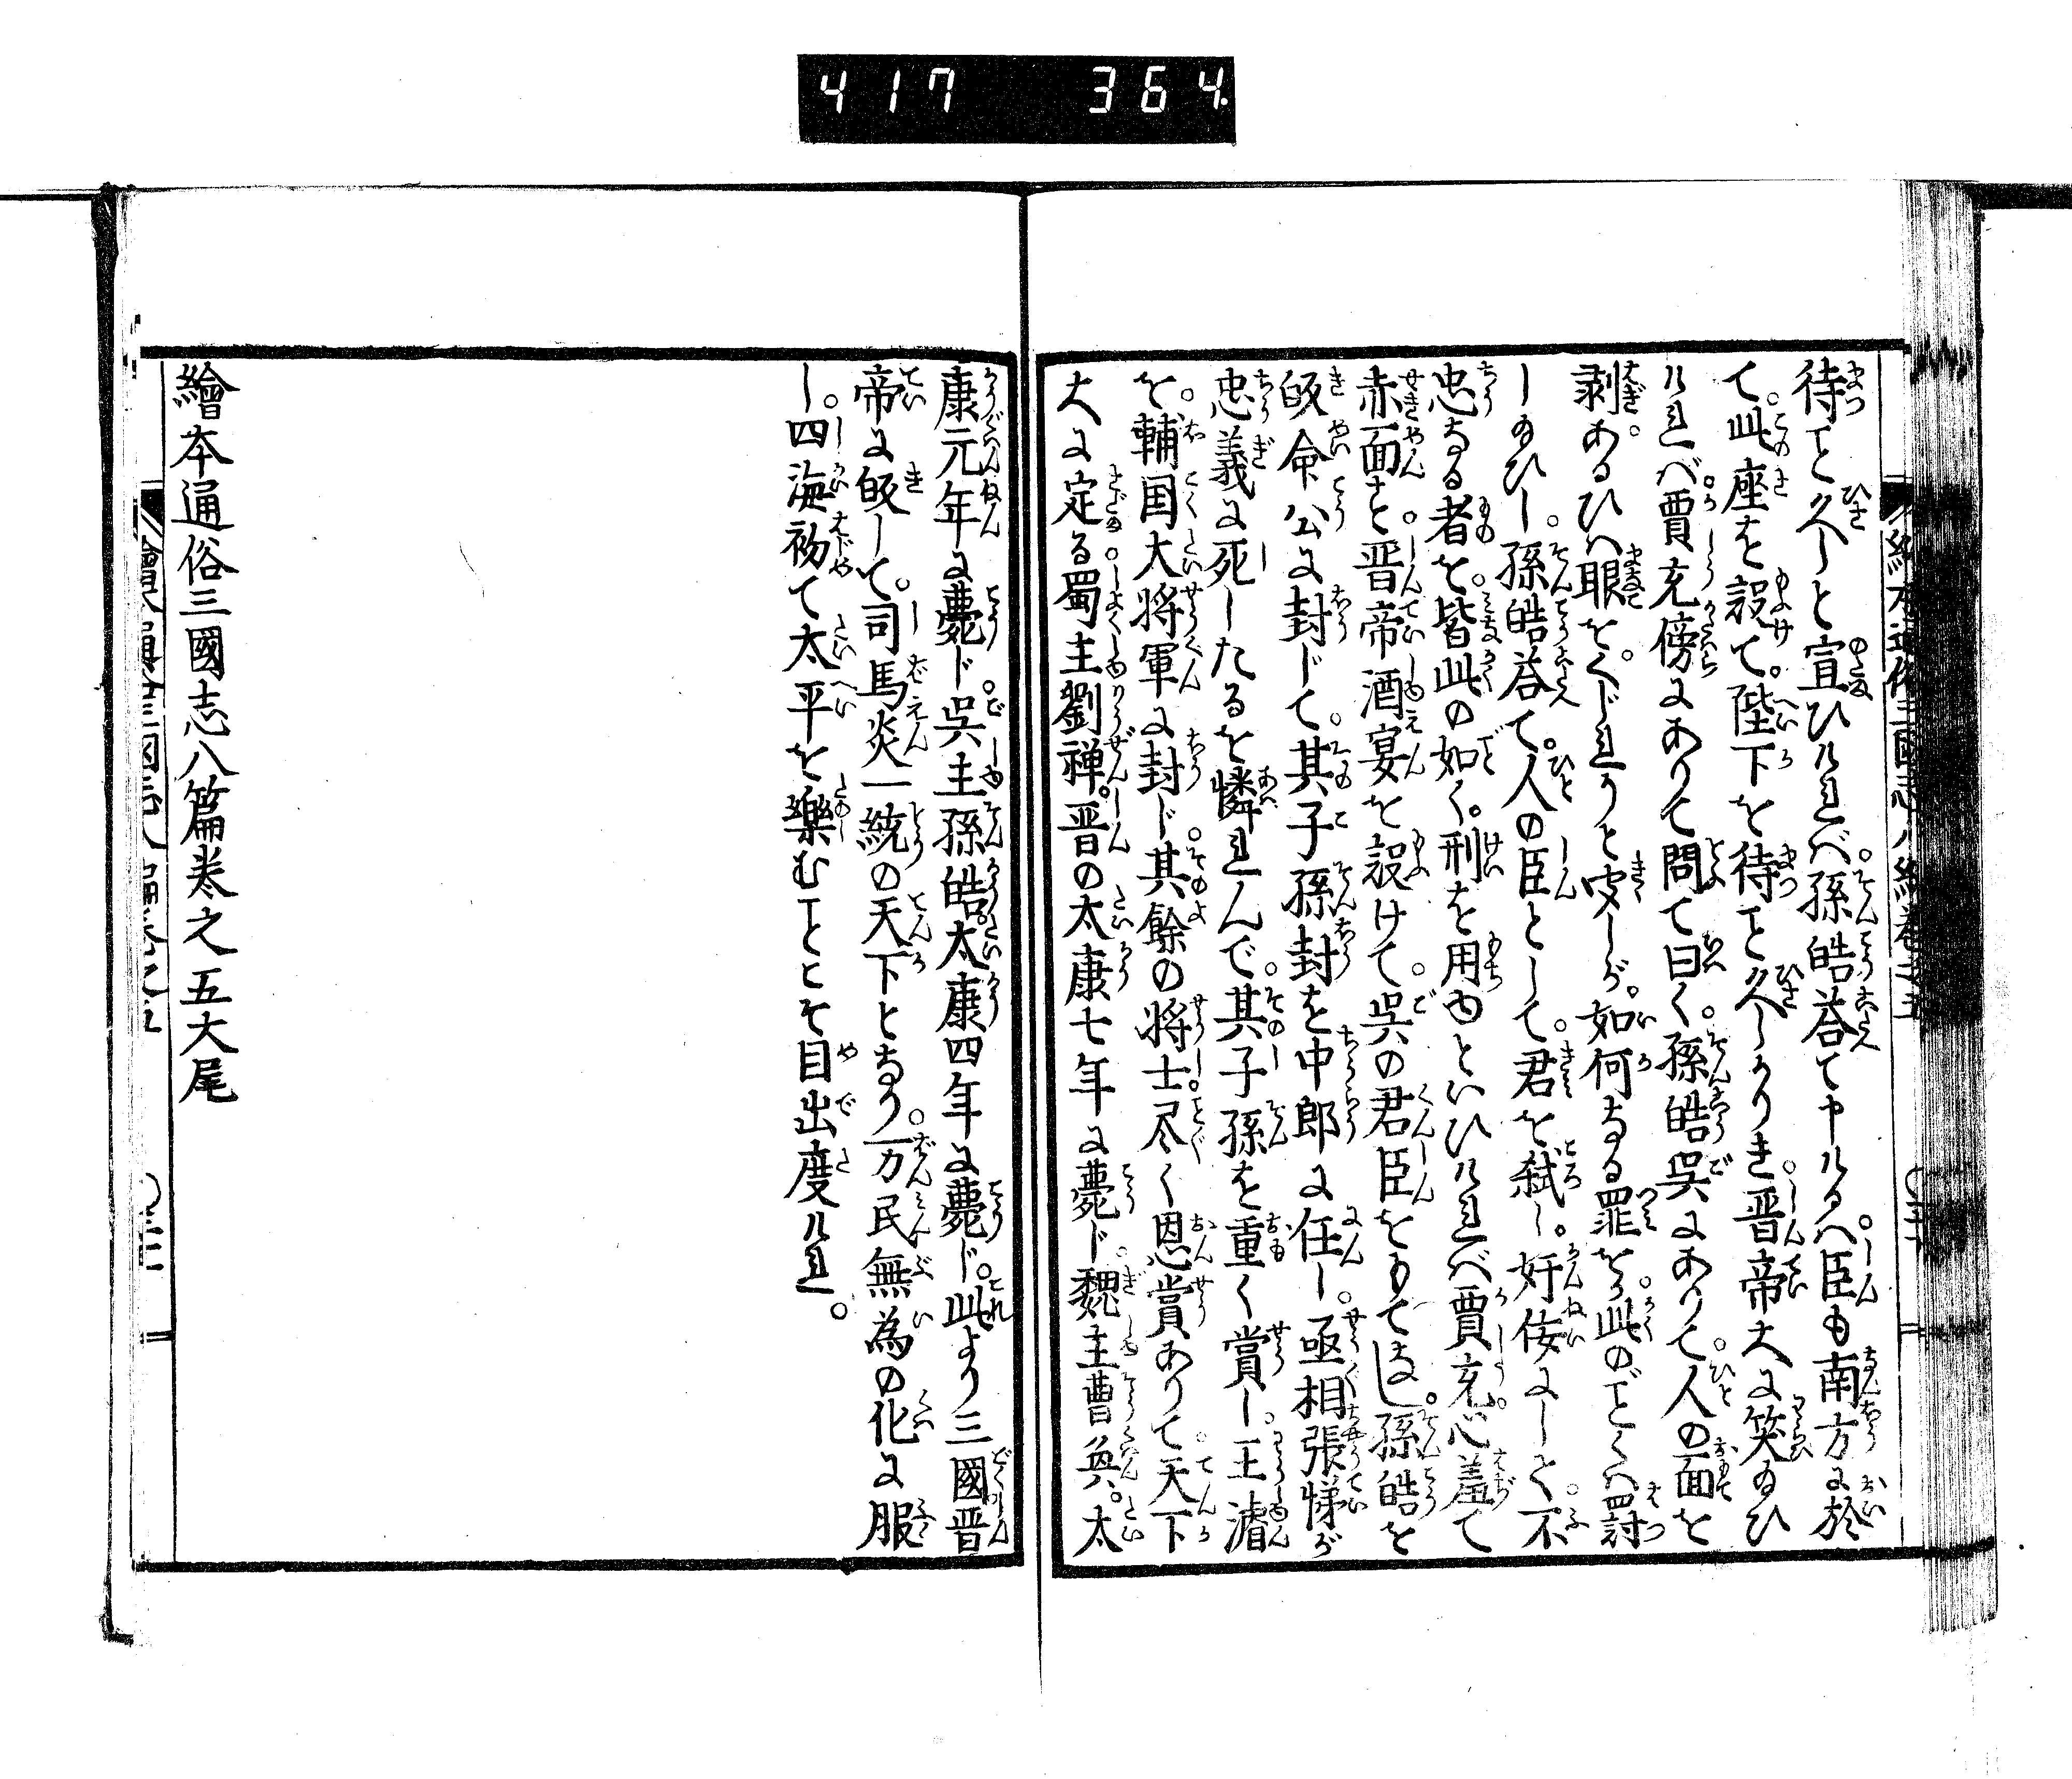 417 364
待こと久しと宣ひければ。孫皓答て申けるハ。臣も南方に於
て。此座を設て。陛下を待こと久しかりき。晋帝大に笑ゐひ
ければ。賈充傍にありて問て曰く。孫皓呉にありて。人の面を
剥。あるひハ眼をくじれりと聞しが。如何なる罪をか。此のごとくハ罸
し給ひし。孫皓答て。人の臣として。君を弑し。奸佞にして。不
忠なる者を。皆此の如く。刑を用ゆといひければ。賈充心羞て
赤面す。晋帝酒宴を設けて。呉の君臣をもてなし。孫皓を
皈命公に封じて。其子孫封を中郎に任し。丞相張悌が
忠義に死したるを憐れんで。其子孫を重く賞し。王濬
を。輔国大将軍に封じ。其餘の将士。尽く恩賞ありて。天下
大に定る。蜀主劉禅。晋の太康七年に薨ず。魏主曹奐。太
康元年に薨ず。呉主孫皓。太康四年に薨ず。此より三國晋
帝に皈して。司馬炎一統の天下となり。万民無為の化に服
し。四海初て太平を樂むことこそ目出度けれ。
繪本通俗三國志八篇巻之五大尾